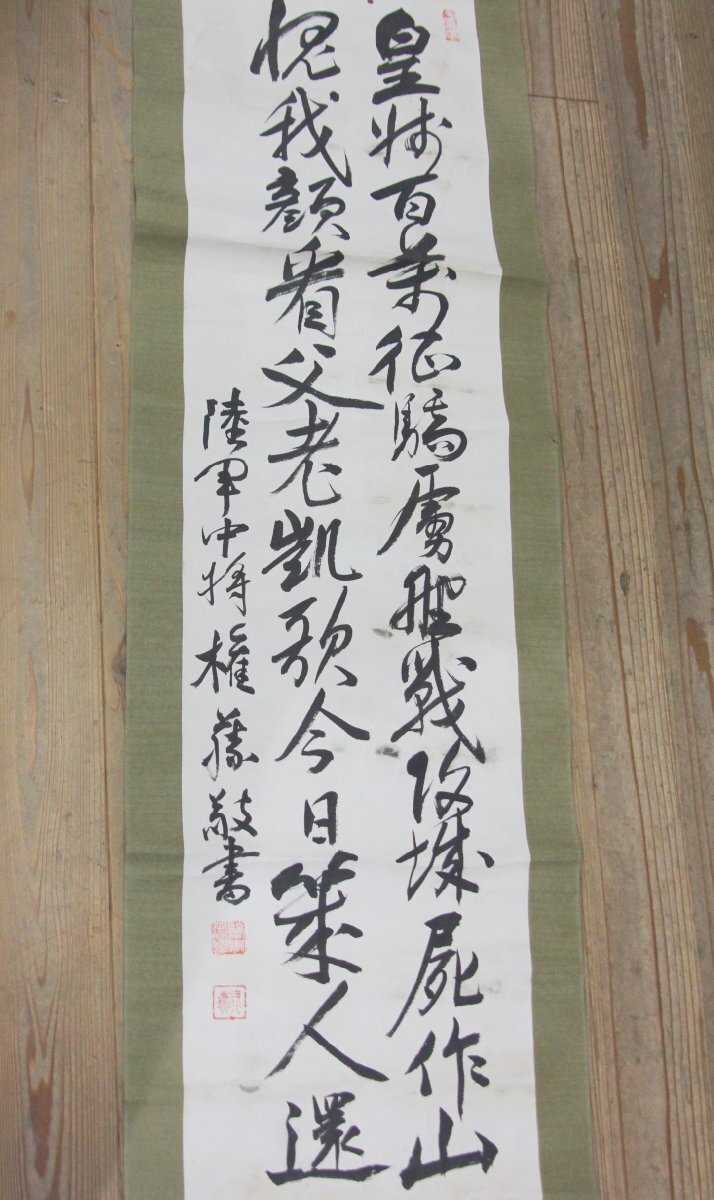 皇師百萬征驕虜野戰攻城屍作山
愧我顔看父老凱歌今日幾人還
陸軍中将權藤敬書